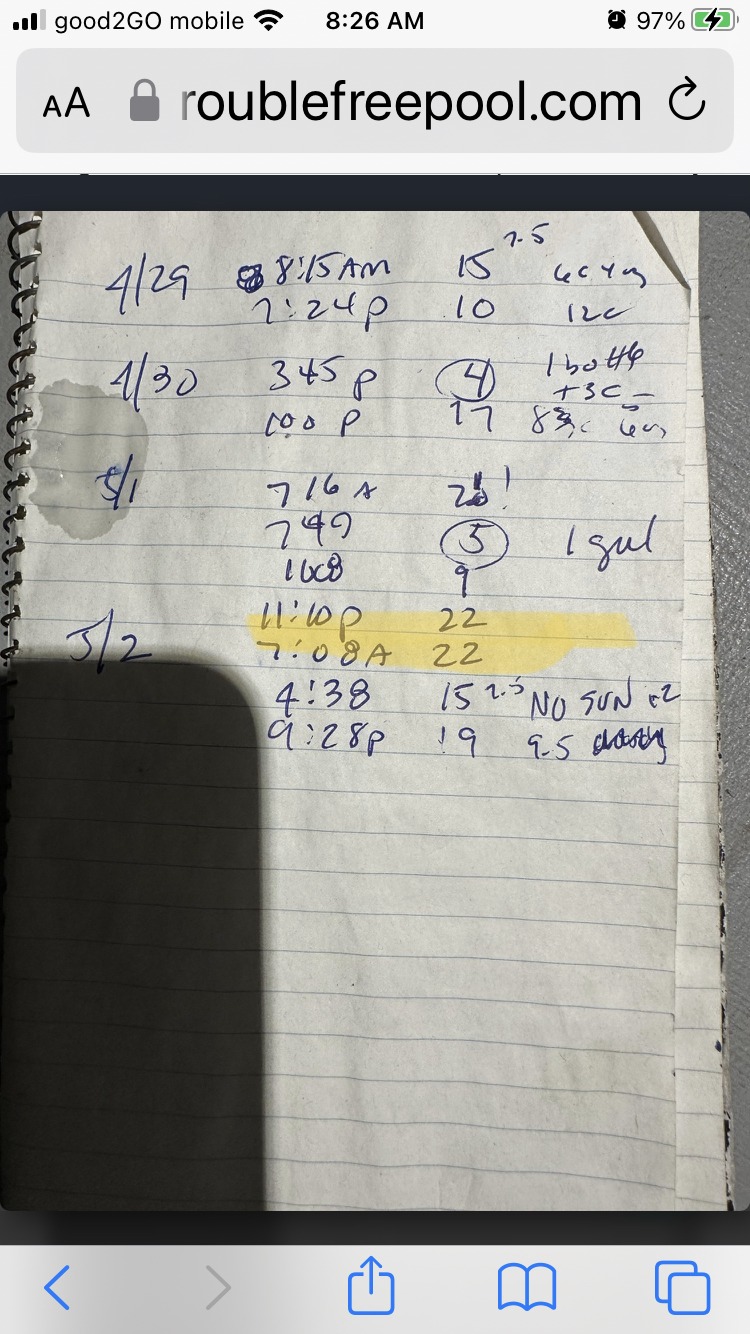 good2GO mobile 8:26 AM 97%
AA roublefreepool.com
7.5
4/29 8:15 AM 15
7:24 p 10 12c
4/30 345 p 4 1 bottle
+3c
100 p 17
5/1 716 A
749 5 1 gal
1008 9
11:10 p 22
5/2 7:08 A 22
4:38 15 7.5 NO SUN
9:28p 19 9.5